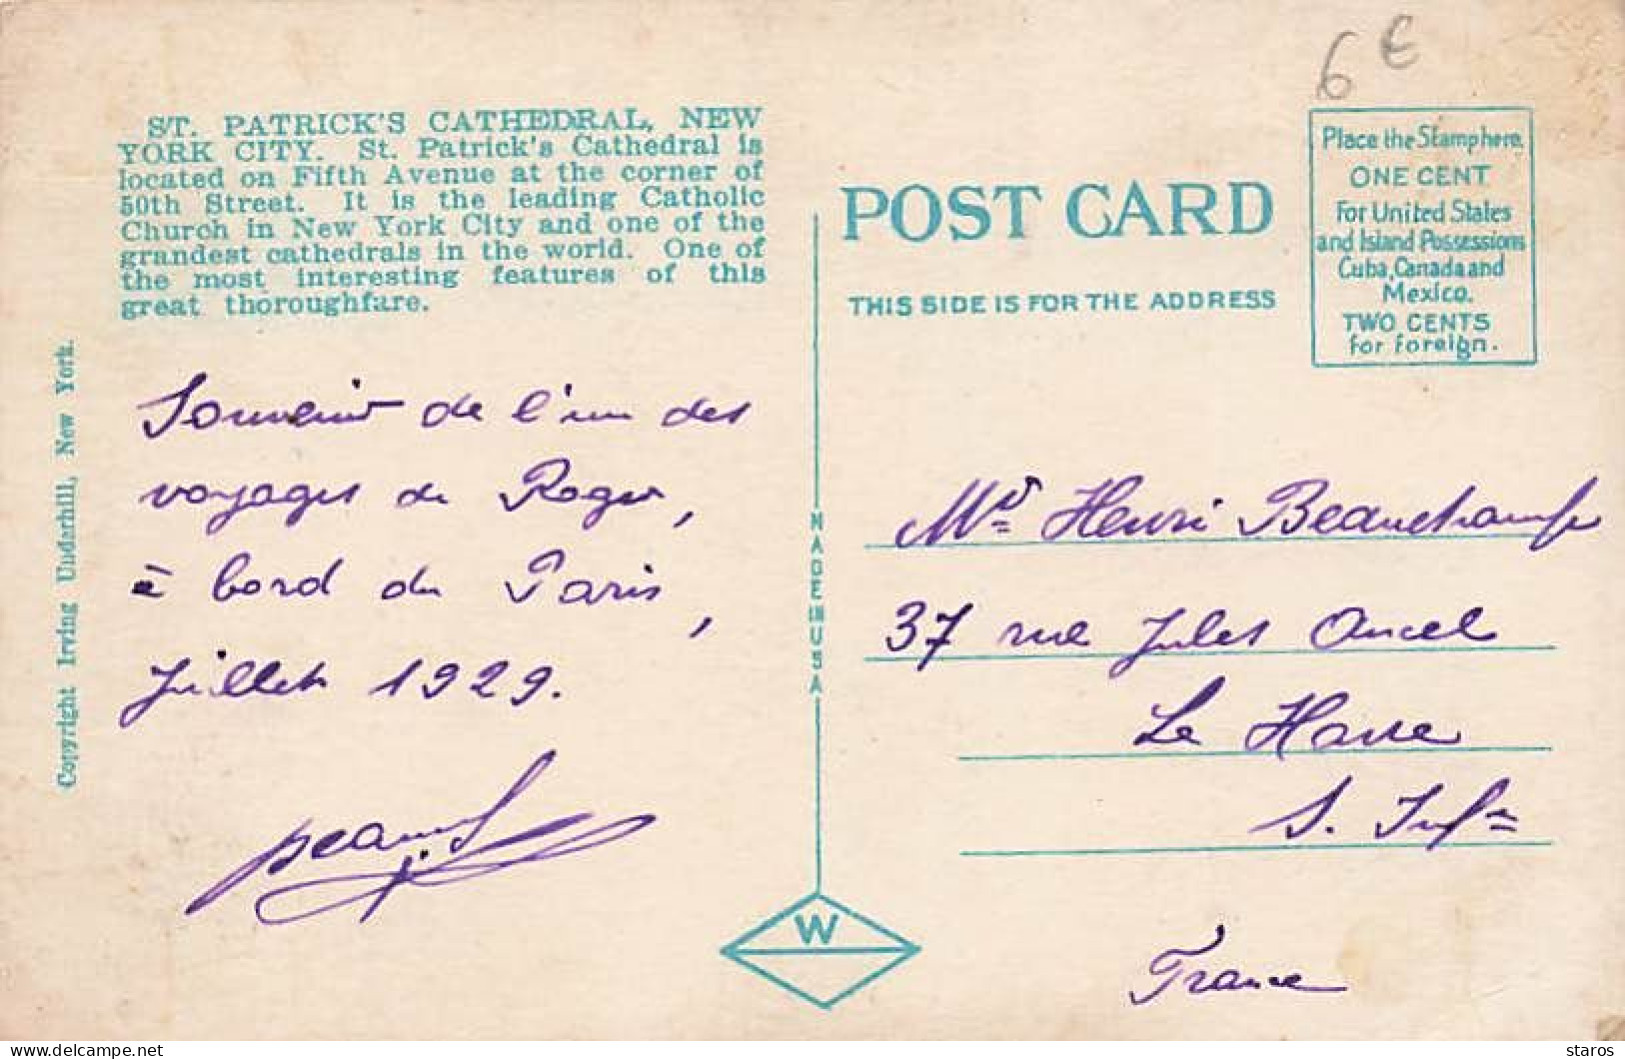 6 €
ST. PATRICK'S CATHEDRAL, NEW
YORK CITY. St. Patrick's Cathedral is
located on Fifth Avenue at the corner of
50th Street. It is the leading Catholic
Church in New York City and one of the
grandest cathedrals in the world. One of
the most interesting features of this
great thoroughfare.
Copyright Irving Underhill, New York.
Souvenir de l'un des
voyages de Roger,
à bord du Paris,
Juillet 1929.
MADE IN USA
W
POST CARD
THIS SIDE IS FOR THE ADDRESS
Place the Stamp here.
ONE CENT
For United States
and Island Possessions
Cuba, Canada and
Mexico.
TWO CENTS
for foreign.
Mr Henri Beauchamp
37 rue Jules Ancel
Le Havre
S. Infre
France
delcampe.net
staros